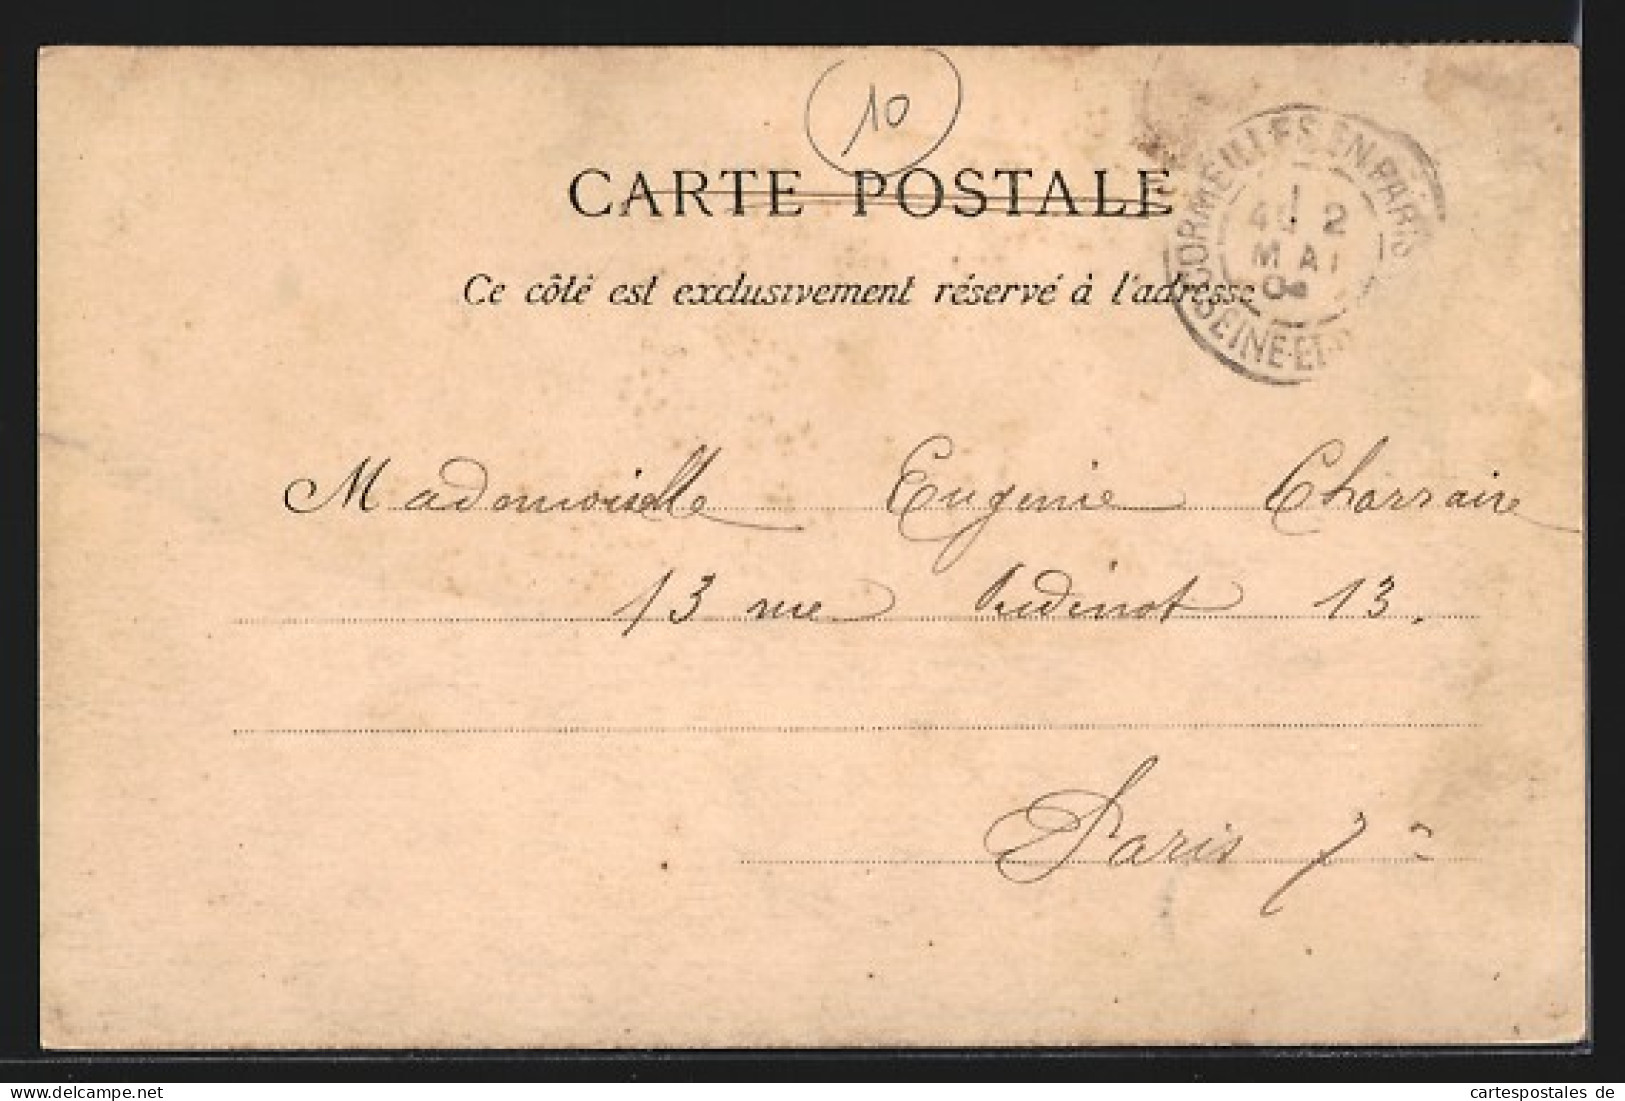 10
CARTE POSTALE
Ce côté est exclusivement réservé à l'adresse
CORMEILLES-EN-PARIS
2
MAI
SEINE-ET-
Mademoiselle Eugenie Charraire
13 rue Oudinot 13.
Paris 7e
delcampe.net
cartespostales de